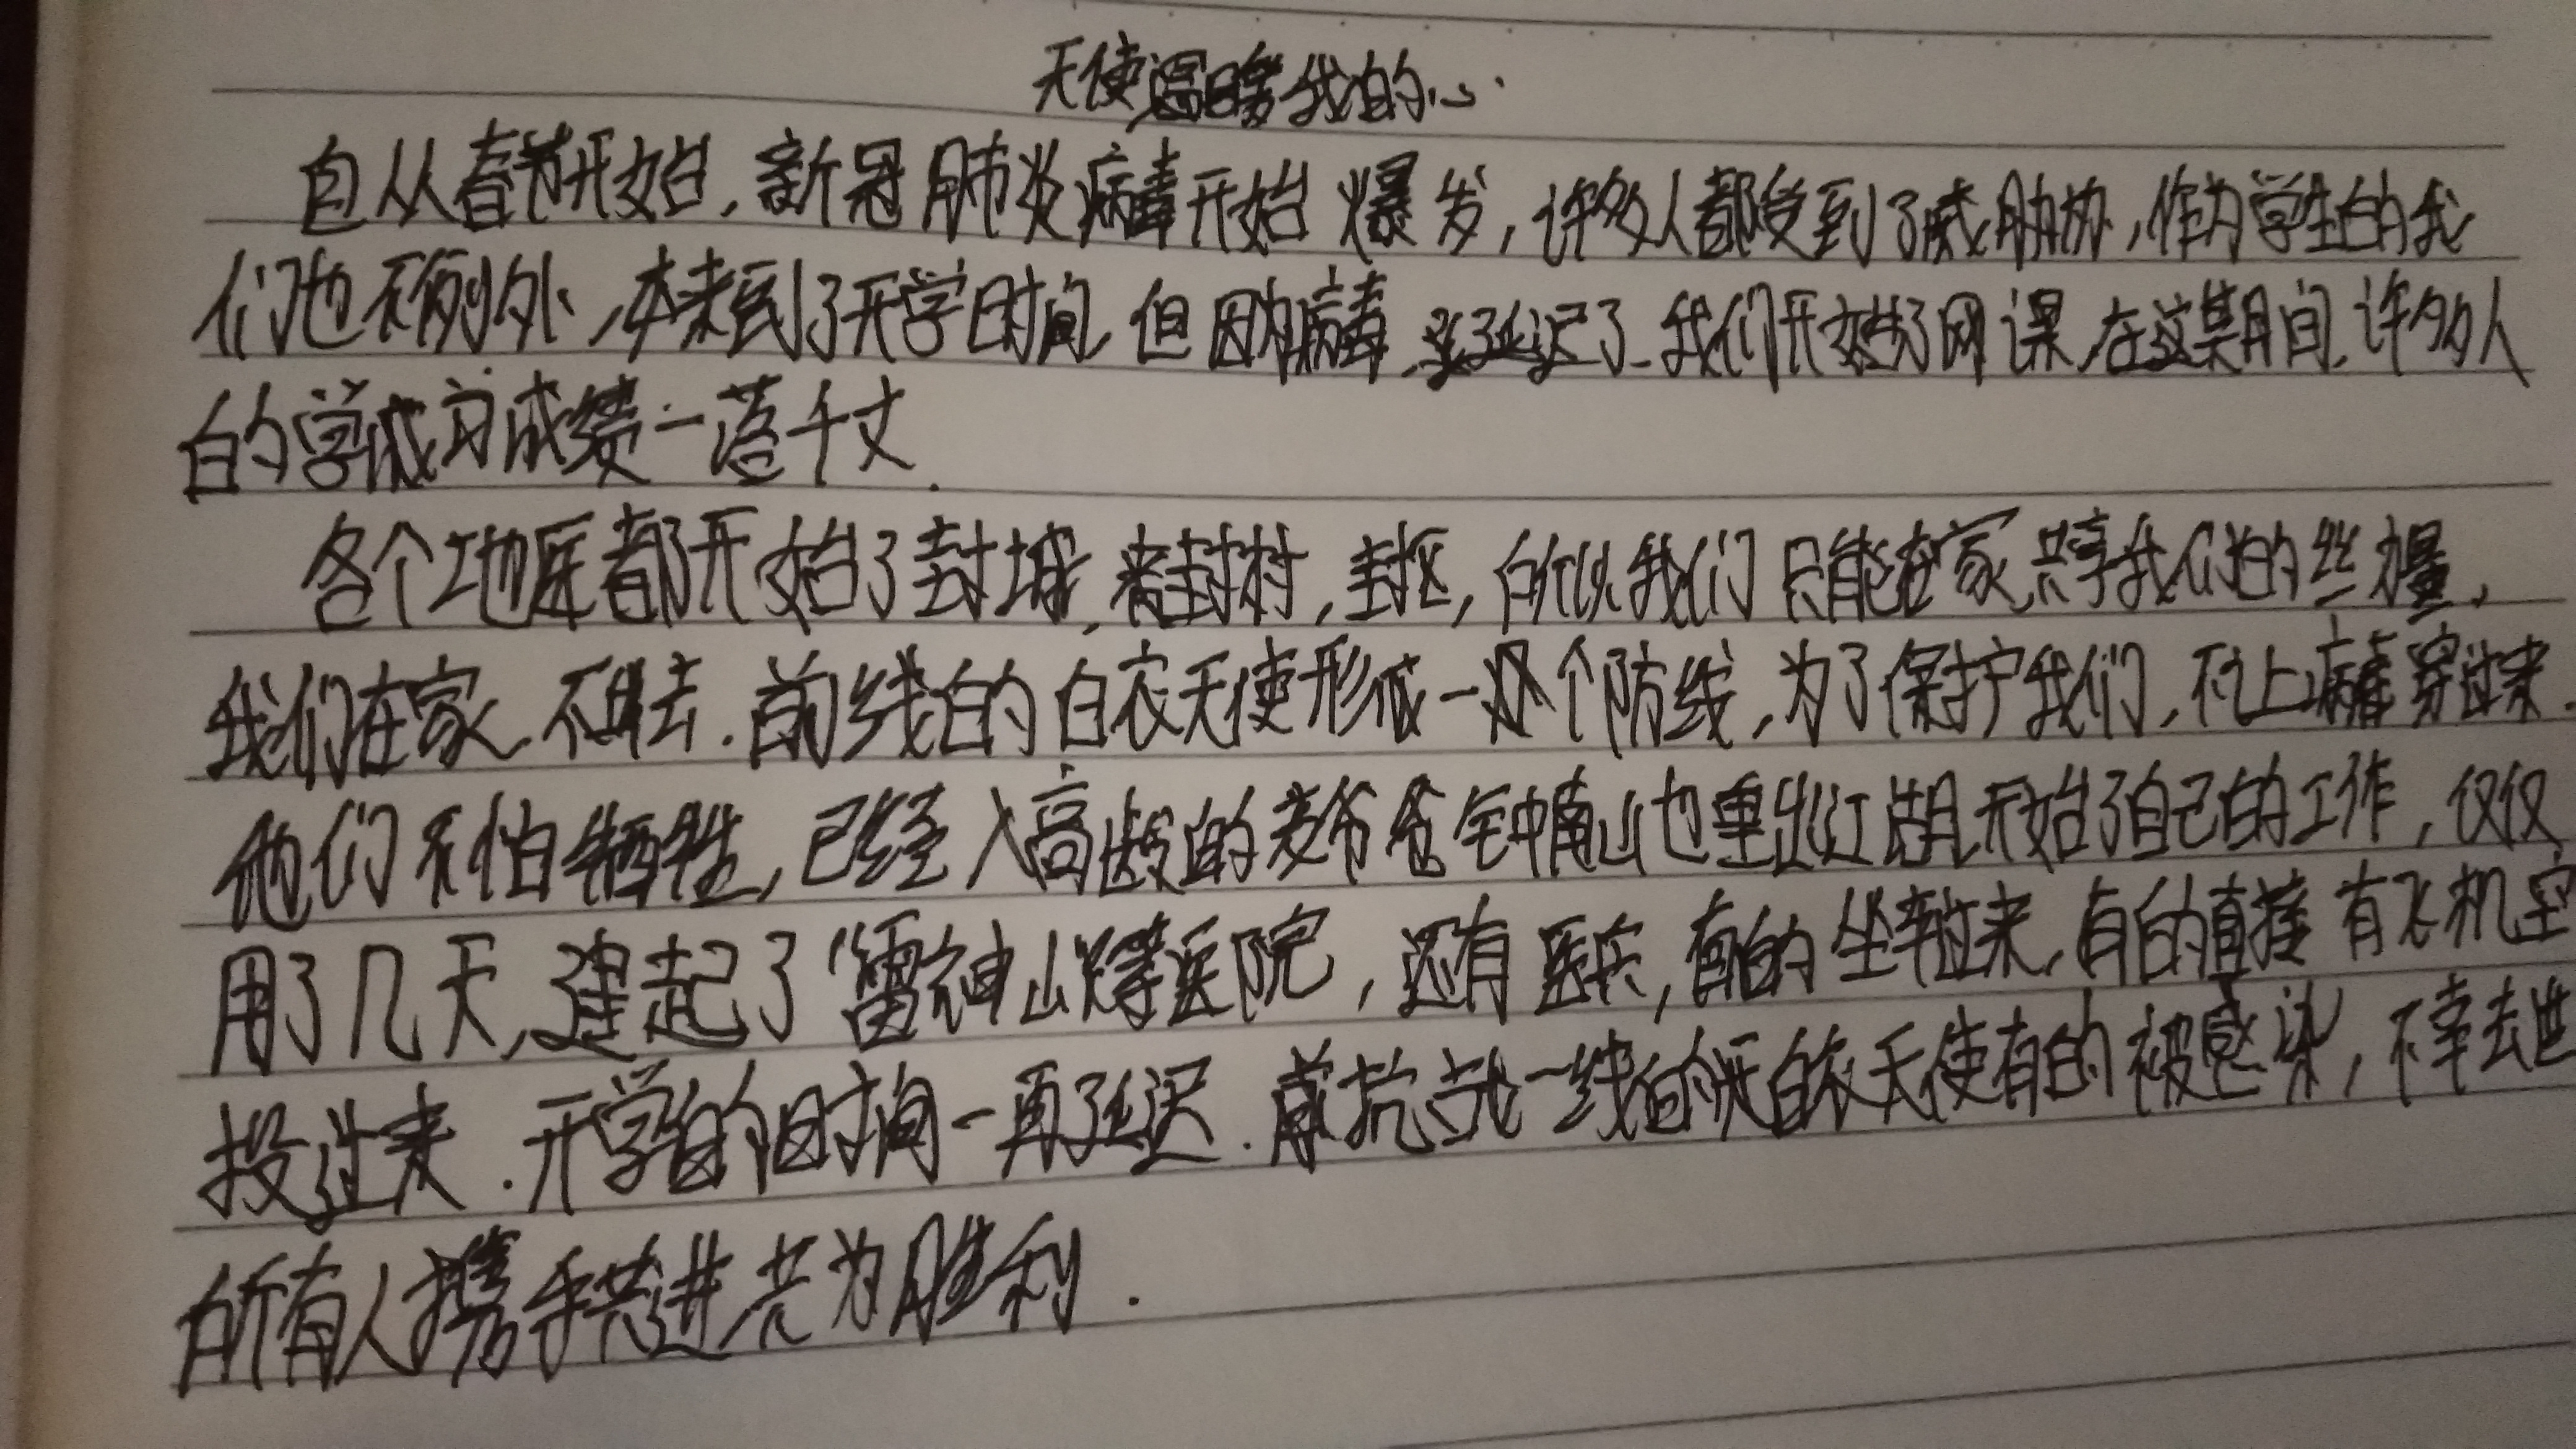 天使温暖我的心
自从春节开始,新冠肺炎病毒开始爆发,许多人都受到了威胁,作为学生的我
们也不例外,本来到了开学时间,但因为病毒,延迟了.我们开始了网课,在这期间,许多人
的学习成绩一落千丈.
各个地区都开始了封城,封村,封区,所以我们只能在家,共享我们的力量,
我们在家,不出去.前线的白衣天使形成一个防线,为了保护我们,不让病毒穿过来.
他们不怕牺牲,已经入高龄的爷爷钟南山也重出江湖,开始了自己的工作,仅仅
用了几天,建起了“雷神山”等医院,还有医兵,有的坐车过来,有的直接有飞机空
投过来.开学的时间一再延迟.抗战一线的白衣天使有的被感染,不幸去世
所有人携手共进共为胜利.